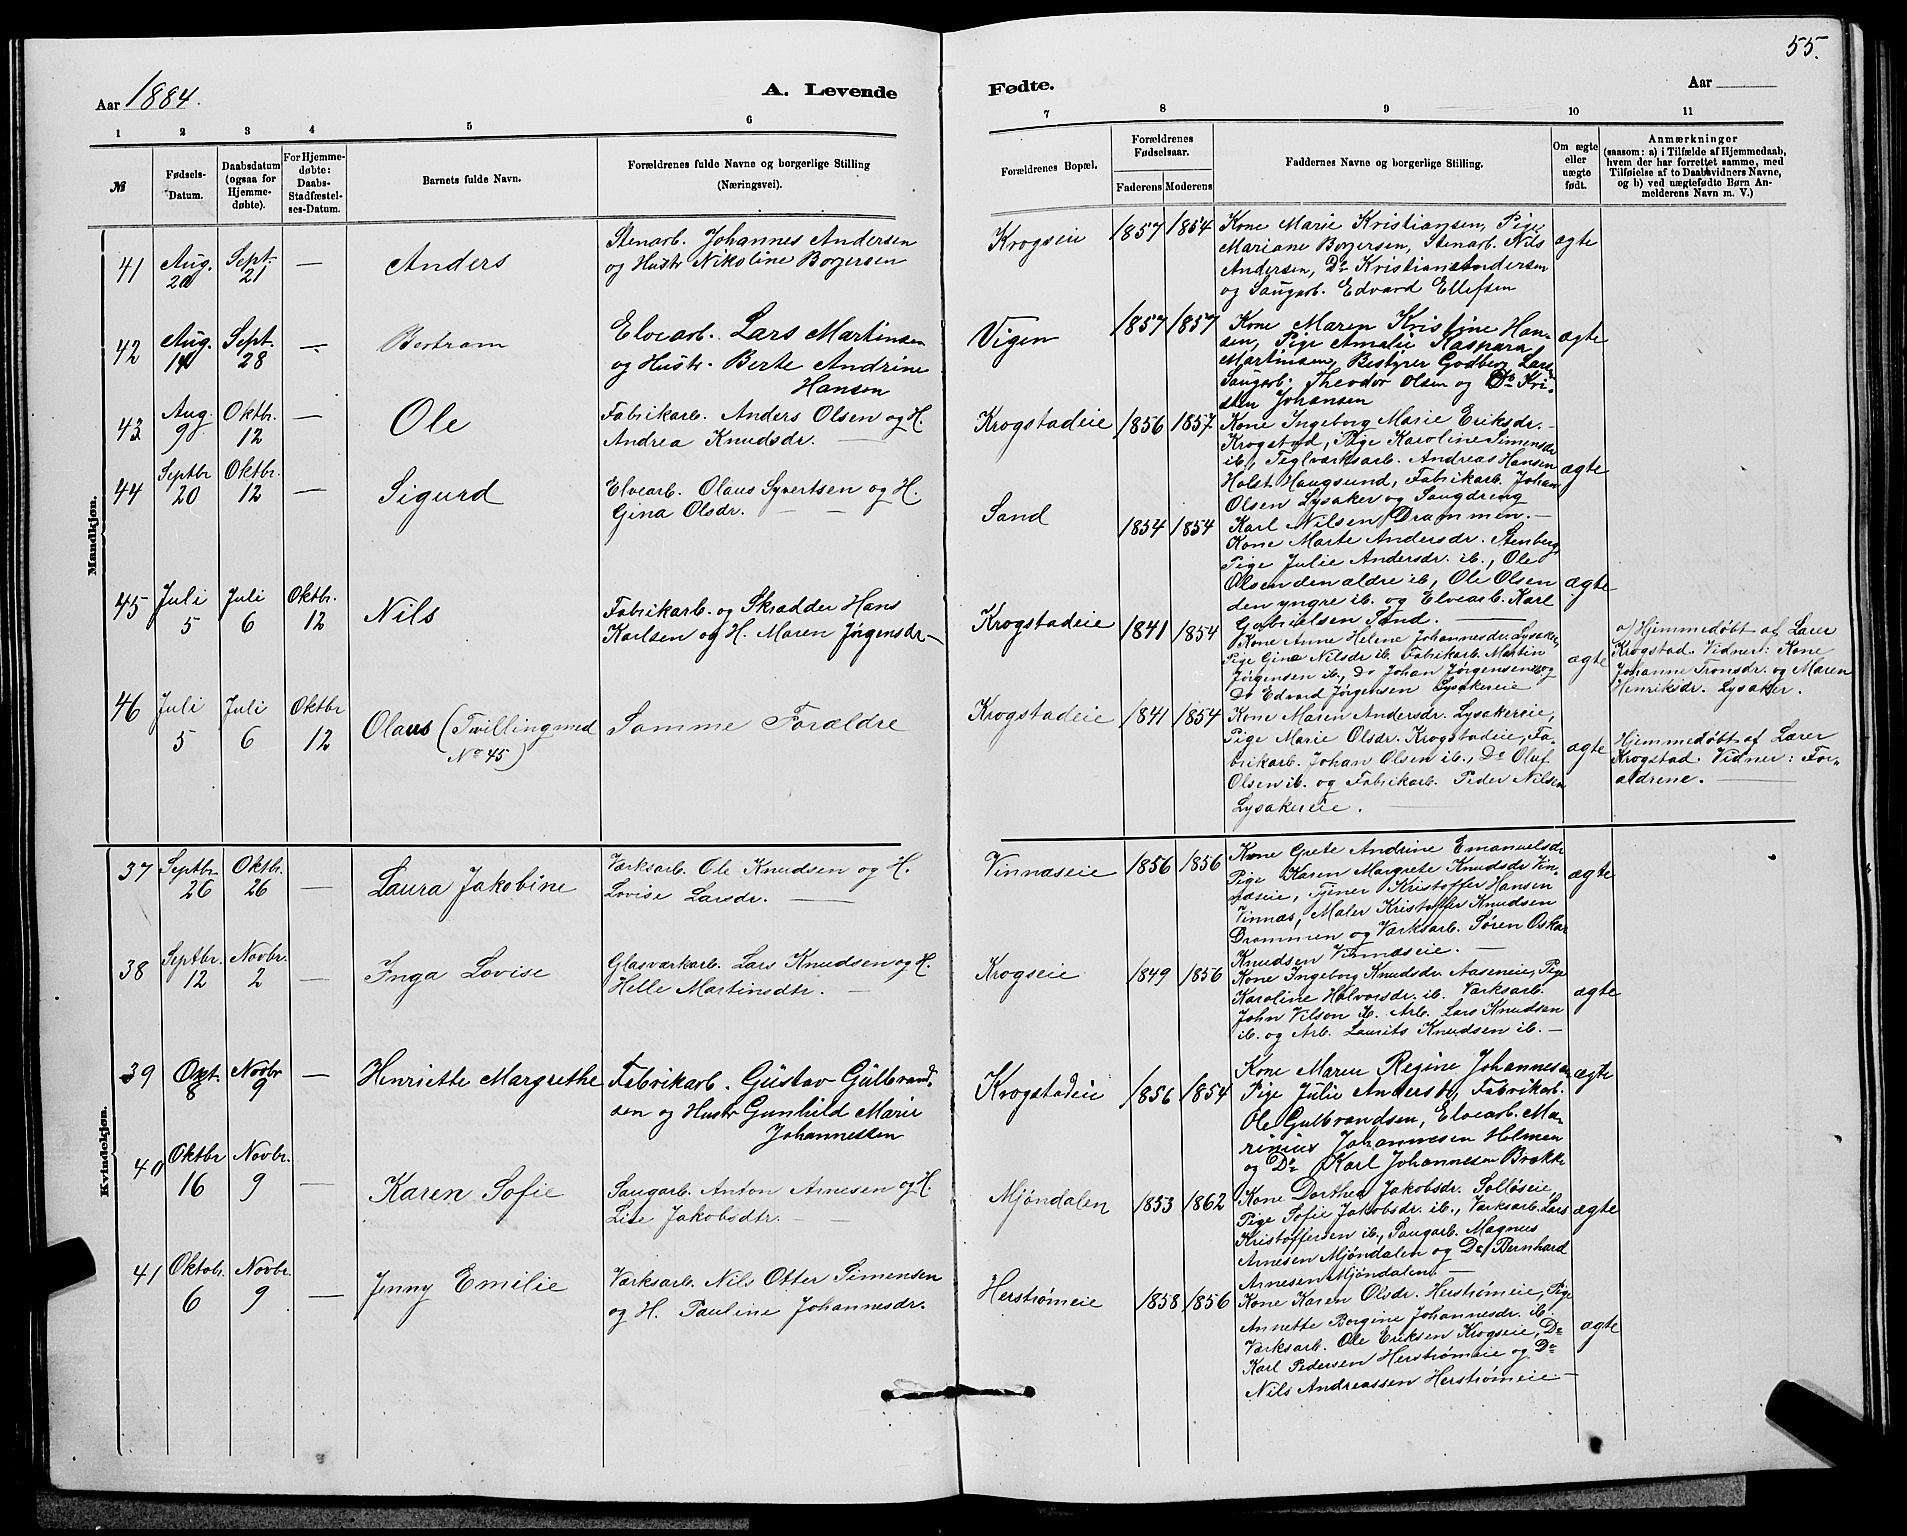 55.
Aar 1884.
A. Levende
Fødte.
Aar
1 2 3 4 5 6 7 8 9 10 11
№
Fødsels-
Datum.
Daabsdatum
(ogsaa for
Hjemme-
døbte).
For Hjemme-
døbte:
Daabs-
Stadfæstel-
ses-Datum.
Barnets fulde Navn.
Forældrenes fulde Navne og borgerlige Stilling
(Næringsvei).
Forældrenes Bopæl.
Forældrenes
Fødselsaar.
Faderens Moderens
Faddernes Navne og borgerlige Stilling.
Om ægte
eller
uægte
født.
Anmærkninger
(saasom: a) i Tilfælde af Hjemmedaab,
hvem der har forrettet samme, med
Tilføielse af to Daabsvidners Navne,
og b) ved uægtefødte Børn An-
melderens Navn m. V.)
Mandkjøn.
41 Aug. 20 Sept. 21 — Anders
Stenarb. Johannes Andersen
og Hustr. Nikoline Borgersen
Krogseie 1857 1854
Kone Marie Kristiansen, Pige
Mariane Borgersen, Stenarb. Nils
Andersen, Do Kristian Andersen
og Saugarb. Edvard Ellefsen
ægte
42 Aug. 14 Sept. 28 — Bertram
Elvearb. Lars Martinsen
og Hustr. Berte Andrine
Hansen
Vigen 1857 1857
Kone Maren Kristine Han-
sen, Pige Amalie Kaspara
Martinsen, Bestyrer Godberg Lars.
Saugarb. Theodor Olsen og Do Kri-
sten Johansen
ægte
43 Aug. 9 Oktbr. 12 — Ole
Fabrikarb. Anders Olsen og H.
Andrea Knudsdr. —
Krogstadeie 1856 1857
Kone Ingeborg Marie Eriksdr. —
Krogstad, Pige Karoline Simensdr
ib., Teglværksarb. Andreas Hansen
Holst Haugsund, Fabrikarb. Johan
Olsen Lysaker og Saugdreng
Karl Nilsen Drammen. —
ægte
44 Septbr 20 Oktbr. 12 — Sigurd
Elvearb. Olaus Syvertsen og H.
Gina Olsdr. — —
Sand 1854 1854
Kone Marte Andersdr. Stenberg,
Pige Julie Andersdr. ib., Ole
Olsen den ældre ib, Ole Olsen
den yngre ib. og Elvearb. Karl
Gabrielsen Sand. —
ægte
45 Juli 5 Juli 6 Oktbr. 12 Nils
Fabrikarb. og Skrædder Hans
Karlsen og H. Maren Jørgensdr —
Krogstadeie 1841 1854
Kone Anne Helene Johannesdr. Lysaker,
Pige Gina Nilsdr ib. Fabrikarb. Martin
Jørgensen ib., Do Johan Jørgensen og
Do Edvard Jørgensen Lysakereie
ægte
a) Hjemmedøbt af Lærer
Krogstad. Vidner: Kone
Johanne Tronsdr. og Maren
Henriksdr. Lysaker.
46 Juli 5 Juli 6 Oktbr 12 Olaus (Tvilling med
No 45)
Samme Forældre
Krogstadeie 1841 1854
Kone Maren Andersdr. Lysakereie,
Pige Marie Olsdr. Krogstadeie, Fa-
brikarb. Johan Olsen ib., Do Oluf
Olsen ib. og Fabrikarb. Peder Nilsen
Lysakereie. —
ægte
Hjemmedøbt af Lærer
Krogstad. Vidner: For-
ældrene. —
Kvindekjøn.
37 Septbr. 26 Oktbr. 26 — Laura Jakobine
Værksarb. Ole Knudsen og H.
Lovise Larsdr. —
Vinnæseie 1856 1856
Kone Grete Andrine Emanuelsdr
Pige Karen Margrete Knudsdr Vin-
næseie, Tjener Kristoffer Hansen
Vinnæs, Maler Kristoffer Knudsen
Drammen og Værksarb. Søren Oskar
Knudsen Vinnæseie. —
ægte
38 Septbr. 12 Novbr. 2 — Inga Lovise
Glasværkarb. Lars Knudsen og H.
Helle Martinsdtr. —
Krogseie 1849 1856
Kone Ingeborg Knudsdr. Aaseneie, Pige
Karoline Halvorsdr. ib. Værksarb.
John Vilson ib. Arb. Lars Knudsen
ib. og Arb. Laurits Knudsen ib. —
ægte
39 Okt. 8 Novbr 9 — Henriette Margrethe
Fabrikarb. Gustav Gulbrand-
sen og Hustr Gunhild Marie
Johannessen
Krogstadeie 1856 1854
Kone Maren Regine Johannesen
Pige Julie Andersdr, Fabrikarb.
Ole Gulbrandsen, Elvearb. Ma-
rinius Johannesen Holmen
og Do Karl Johannesen Brække
ægte
40 Oktbr 16 Novbr. 9 — Karen Sofie
Saugarb. Anton Arnesen og H.
Lise Jakobsdtr. —
Mjøndalen 1853 1862
Kone Dorthea Jakobsdr. Solløseie,
Pige Sofie Jakobsdr. ib., Værksarb. Lars
Kristoffersen ib., Saugarb. Magnus
Arnesen Mjøndalen og Do Bernhard
Arnesen Mjøndalen. —
ægte
41 Oktobr. 6 Novbr. 9 — Jenny Emilie
Værksarb. Nils Otter Simensen
og H. Pauline Johannesdr.
Herstrømeie 1858 1856
Kone Karen Olsdr. Herstrømeie, Pige
Annette Borgine Johannesdr. ib.
Værksarb. Ole Eriksen Krogseie, Do
Karl Pedersen Herstrømeie og Do
Nils Andreassen Herstrømeie —
ægte